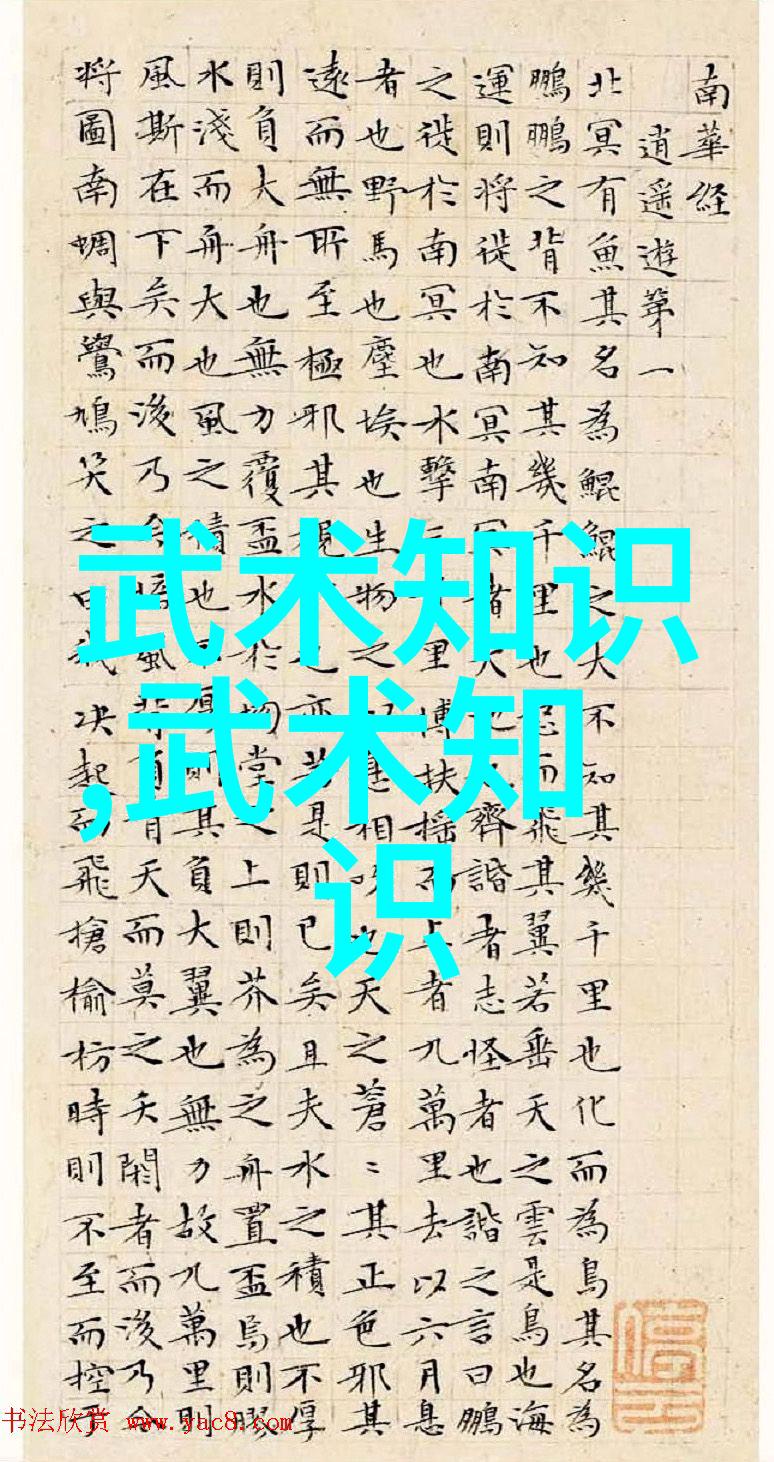 南華経
逍遥遊第一
北冥有魚其名為鯤鯤之大不知其幾千里也化而為鳥其名為
鵬鵬之背不知其幾千里也怒而飛其翼若垂天之雲是鳥也海
運則将徙於南冥南冥者天也齊諧者志怪者也諧之言曰鵬
之徙於南冥也水擊三千里摶扶揺而上者九萬里去以六月息
者也野馬也塵埃也生物之以息相吹也天之蒼〻其正色邪其
遠而無所至極邪其視也亦若是則已矣且夫水之積也不厚
則負大舟也無力覆盃水於坳堂之上則芥為之舟置盃焉則膠
水淺而舟大也風之積也不厚則其負大翼也無力故九萬里則
風斯在下矣而後乃今培風背負青天而莫之夭閼者而後乃今
将圖南蜩與鷽鳩笑之曰我决起而飛搶榆枋時則不至而控於
武术知识
,武术知
识
书法欣赏 www.yac8.com